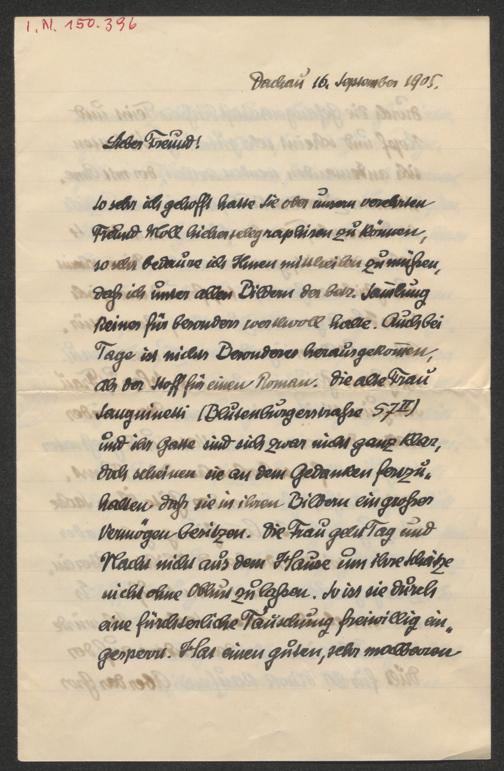 I.N. 150.396
Dachau 16. September 1905.
Lieber Freund!
So sehr ich gehofft hatte Sie oder unsern verehrten
Freund Moll hiehertelegraphiren zu können,
so sehr bedaure ich Ihnen mittheilen zu müßen,
daß ich unter allen Bildern der betr. Samlung
keines für besonders wertvoll halte. Auch bei
Tage ist nichts Besonderes herausgekom̄en,
als der Stoff für einen Roman. Die alte Frau
Sanguinetti (Blutenburgerstrasse 57 II)
und ihr Gatte sind sich zwar nicht ganz klar,
doch scheinen sie an dem Gedanken festzu„
halten daß sie in ihren Bildern ein großes
Vermögen besitzen. Die Frau geht Tag und
Nacht nicht aus dem Hause um ihre Schätze
nicht ohne Obhut zu laßen. So ist sie durch
eine fürchterliche Täuschung freiwillig ein„
gesperrt. Hat einen guten, sehr malbaren